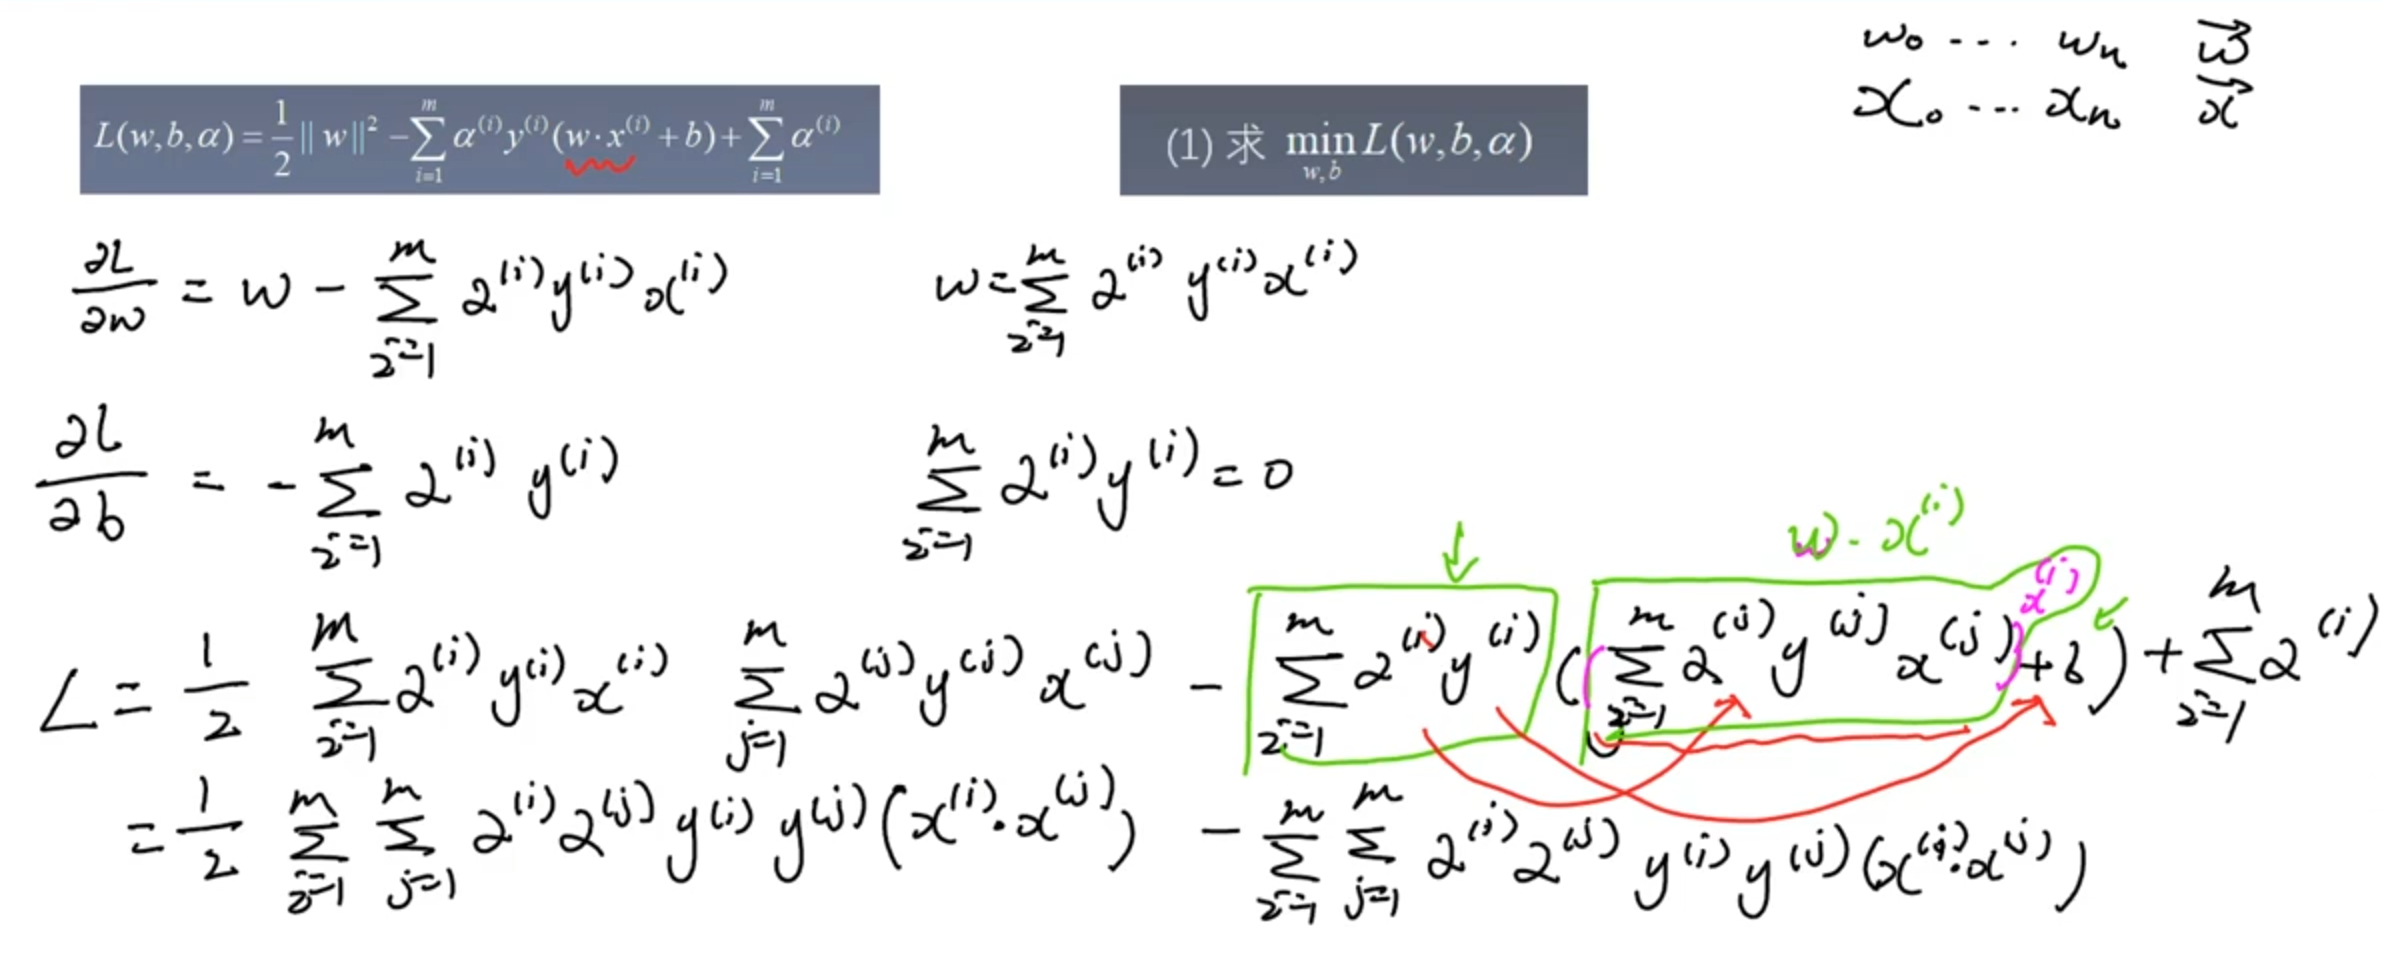 w₀ --- wₙ w⃗
x₀ --- xₙ x⃗
L(w,b,α) = 1/2 ‖w‖² − ∑_{i=1}^{m} α^{(i)} y^{(i)} (w·x^{(i)} + b) + ∑_{i=1}^{m} α^{(i)}
(1) 求 min_{w,b} L(w,b,α)
∂L/∂w = w − ∑_{i=1}^{m} α^{(i)} y^{(i)} x^{(i)}
w = ∑_{i=1}^{m} α^{(i)} y^{(i)} x^{(i)}
∂L/∂b = − ∑_{i=1}^{m} α^{(i)} y^{(i)}
∑_{i=1}^{m} α^{(i)} y^{(i)} = 0
w · x^{(i)}
L = 1/2 ∑_{i=1}^{m} α^{(i)} y^{(i)} x^{(i)} ∑_{j=1}^{m} α^{(j)} y^{(j)} x^{(j)} − ∑_{i=1}^{m} α^{(i)} y^{(i)} ((∑_{i=1}^{m} α^{(j)} y^{(j)} x^{(j)}) x^{(i)} + b) + ∑_{i=1}^{m} α^{(i)}
= 1/2 ∑_{i=1}^{m} ∑_{j=1}^{m} α^{(i)} α^{(j)} y^{(i)} y^{(j)} (x^{(i)} · x^{(j)}) − ∑_{i=1}^{m} ∑_{j=1}^{m} α^{(i)} α^{(j)} y^{(i)} y^{(j)} (x^{(i)} · x^{(j)})